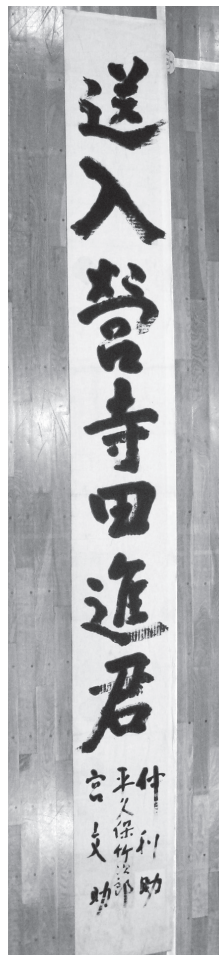 送入営寺田進君
仲利助
平久保竹次郎
宮文助